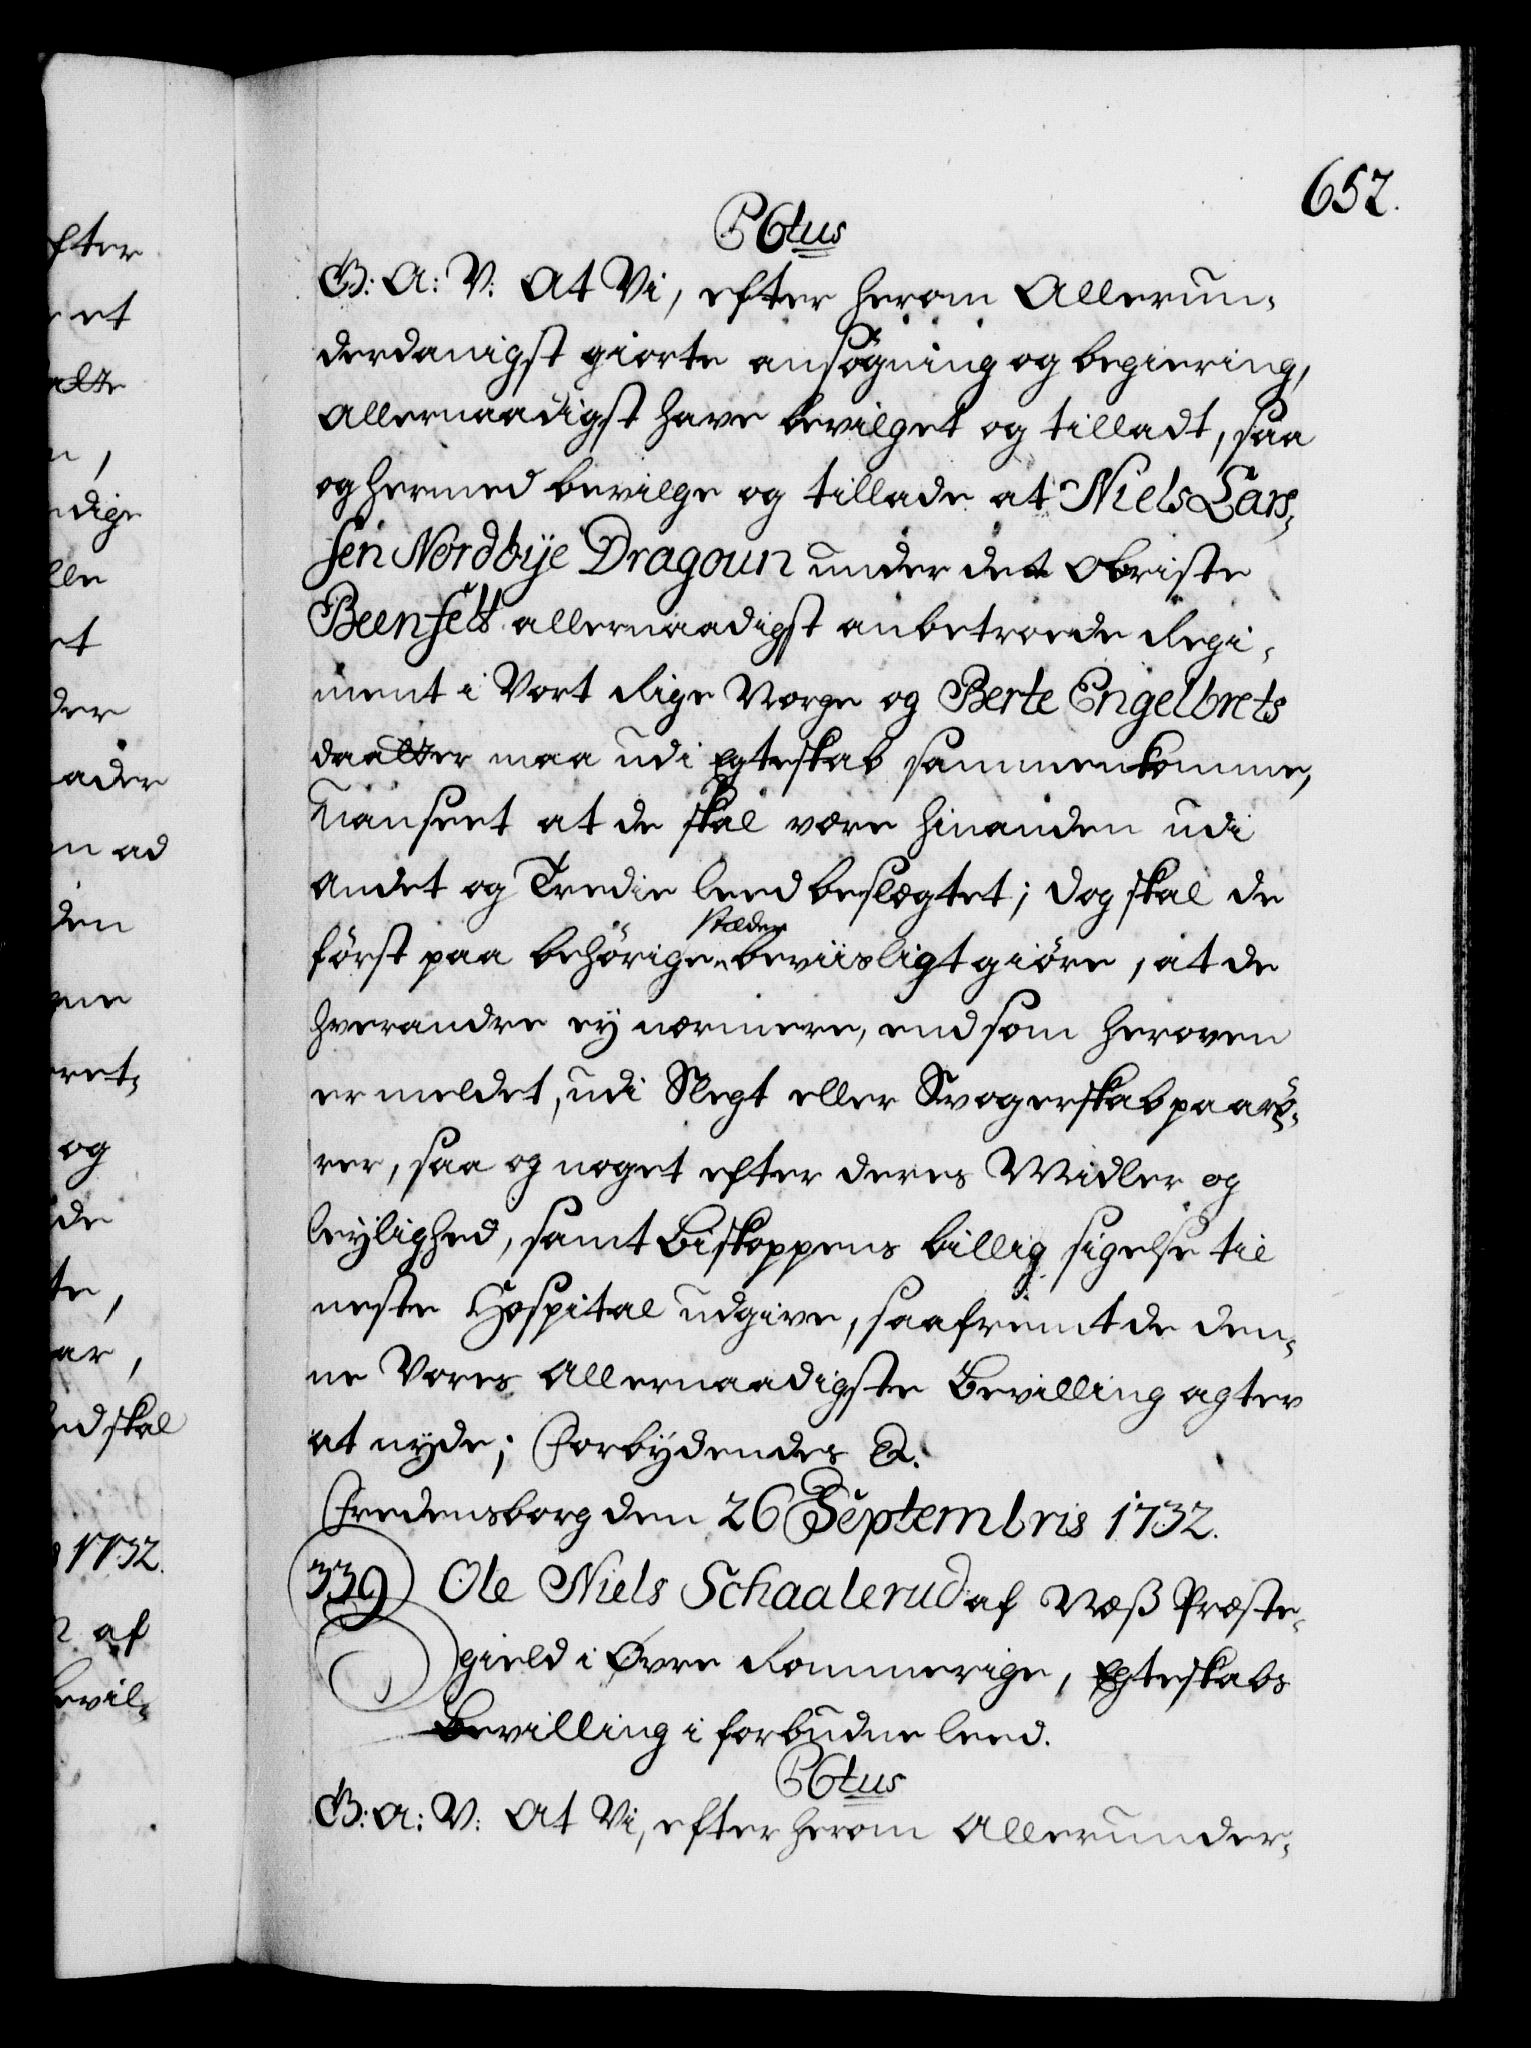 652.
P C6tus
G: A: V: At Vi, efter herom Allerun-
derdanigst giorte ansøgning og begiering,
Allernaadigst have bevilget og tilladt, saa
og hermed bevilge og tillade at Niels Lars-
sen Nordbÿe Dragoun under det Obriste
Beenfelt allernaadigst anbetroede Regi-
ment i Vort Rige Norge og Berte Engelbrets
daatter maa udi Egteskab sammenkomme,
Uanseet at de skal være hinanden udi
andet og Tredie leed beslægtet; dog skal de
stæder
först paa behörige beviisligt giöre, at de
hverandre eÿ nærmere, end som heroven
er meldet, udi Slegt eller Svogerskab paarö-
rer, saa og noget efter deres Midler og
leÿlighed, samt Biskoppens billig sigelse til
neste Hospital udgive, saafremt de den-
ne Vores Allernaadigste Bevilling agter
at nyde; Forbÿdendes &.
Fredensborg den 26 Septembris 1732.
339 Ole Niels Schaalerud af Næß Præste-
gield i Øvre Rommerige, Egteskabs
Bevilling i forbudne leed.
P C6tus
G: A: V: At Vi, efter herom Allerunder-
fter
et
n,
dige
lle
et
der
ader
n ad
den
ret-
og
de
te,
ar,
ed skal
1732.
af
Bevil-